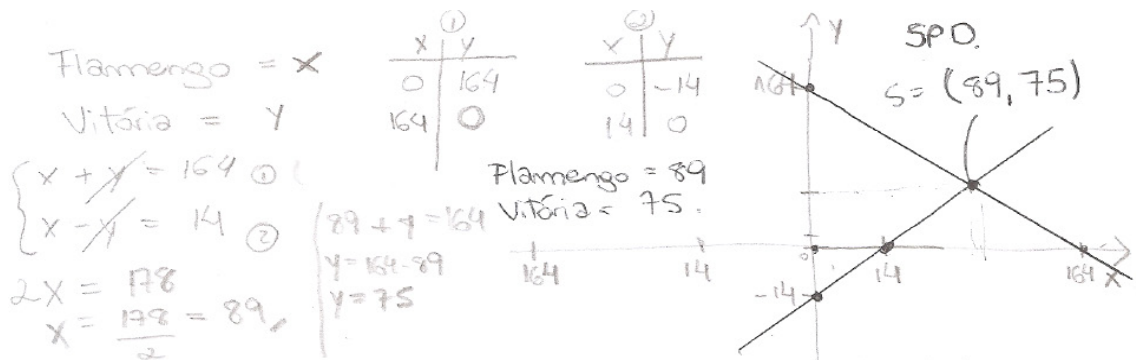 Flamengo = X
Vitória = Y
{ X + Y = 164 ①
X - Y = 14 ②
2X = 178
X = 178/2 = 89
89 + Y = 164
Y = 164 - 89
Y = 75
①
X | Y
0 | 164
164 | 0
②
X | Y
0 | -14
14 | 0
Flamengo = 89
Vitória = 75.
164 14
Y
SPD.
S = (89, 75)
164
0 14 164 X
-14